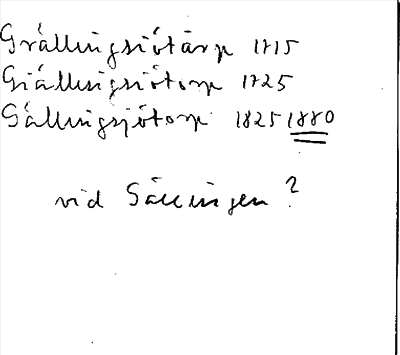 Grällingsiötärp 1715
Giällingsiötorp 1725
Gällingsjötorp 1825 1880
vid Gällingen?